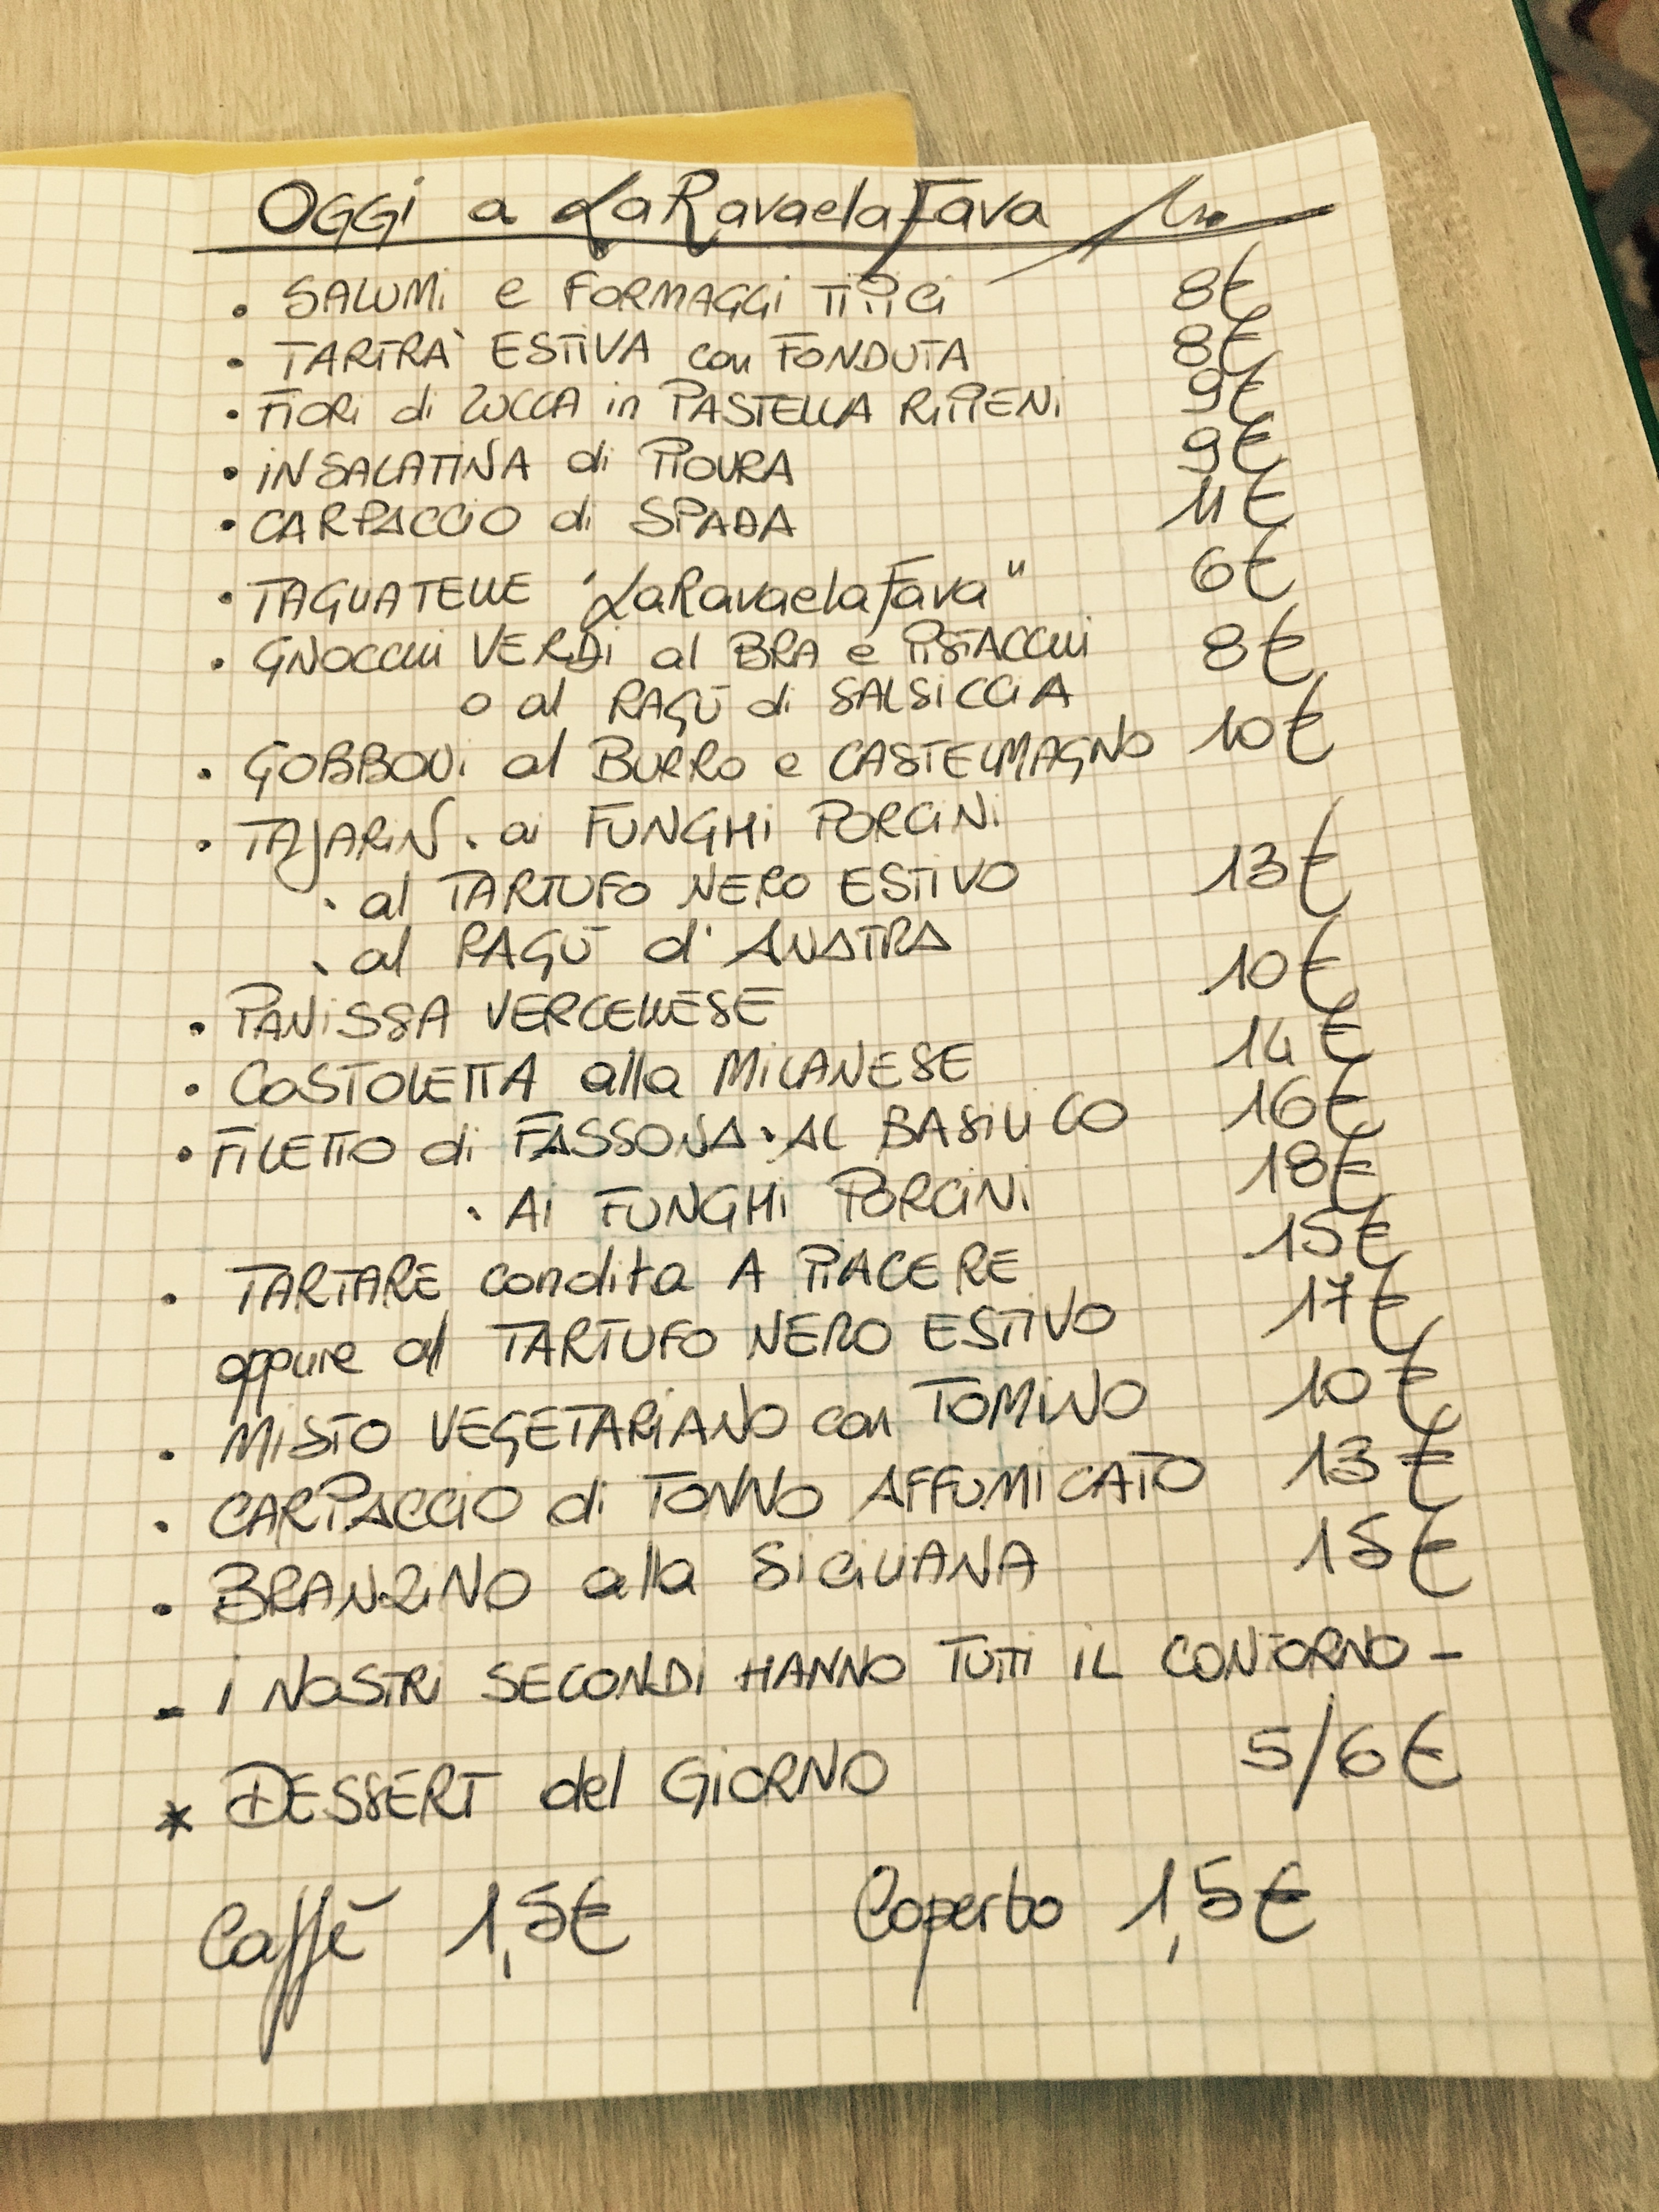 OGGi a LaRavaelaFava
• SALUMi e FORMAGGi TIPICI 8€
• TARTRA' ESTIVA con FONDUTA 8€
• FIORi di ZUCCA in PASTELLA RIPIENi 9€
• iNSALATINA di PIOVRA 9€
• CARPACCIO di SPADA 11€
• TAGLIATELLE "LaRavaelaFava" 6€
• GNOCCHI VERDi al BRA e PISTACCHI 8€
o al RAGÙ di SALSICCIA
• GOBBONi al BURRO e CASTELMAGNO 10€
• TAJARIN • ai FUNGHi PORCINi
• al TARTUFO NERO ESTIVO 13€
• al RAGÙ d'ANATRA
• PANiSSA VERCELLESE 10€
• COSTOLETTA alla MILANESE 14€
• FILETTO di FASSONA • AL BASILICO 16€
• Ai FUNGHi PORCINi 18€
• TARTARE condita A PIACERE 15€
oppure al TARTUFO NERO ESTIVO 17€
• MISTO VEGETARIANO con TOMINO 10€
• CARPACCIO di TONNO AFFUMICATO 13€
• BRANZINO alla SICILIANA 15€
- i NOSTRi SECONDi HANNO TUTTI IL CONTORNO -
* DESSERT del GIORNO 5/6€
Caffè 1,5€ Coperto 1,5€